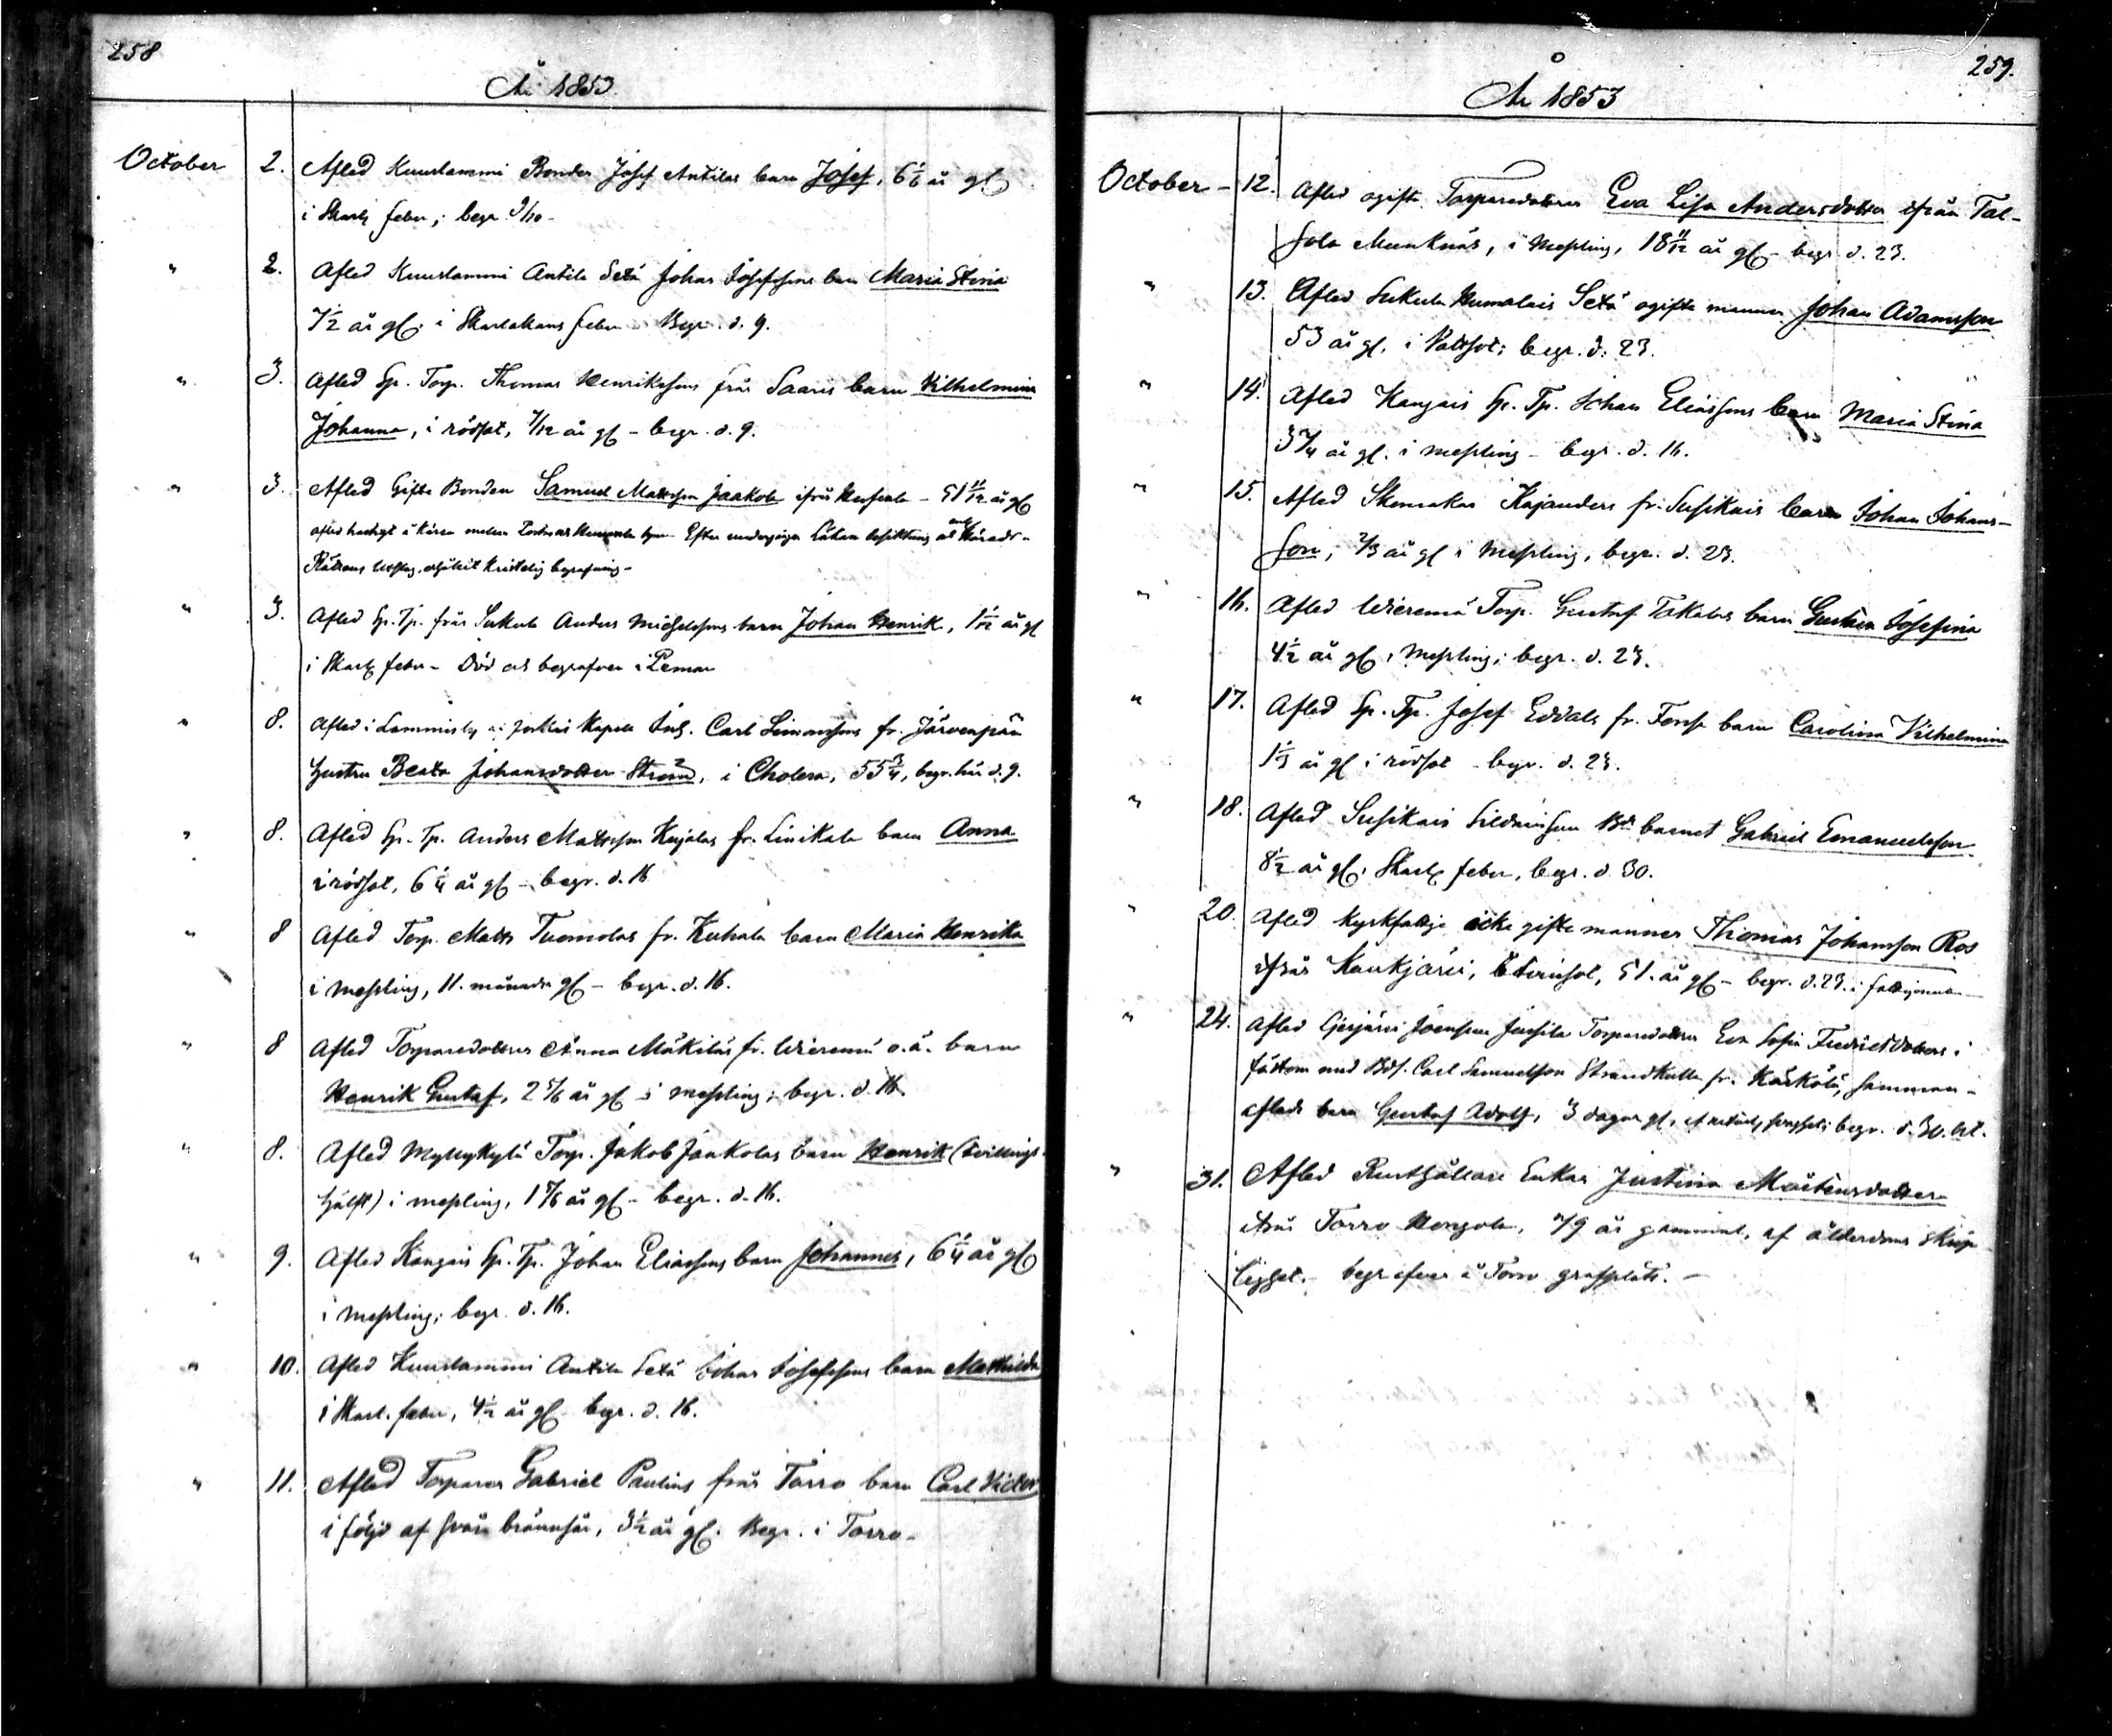 258
År 1853.
October 2. Afled Kuuslammi Bonden Josef Antilas barn Josef, 6 1/6 år gl
i Skarl. feber; begr. 9/10-
" 2. Afled Kuuslammi Antila Setä Johan Josefssons barn Maria Stina
7 1/2 år gl. i Skarlakans feber Begr. d. 9.
" 3. Afled Sp. Torp. Thomas Henrikssons från Saaris barn Vilhelmina
Johanna, i rödsot, 7/12 år gl - begr. d. 9.
" 3. Afled Gifte Bonden Samuel Mattsson Jaakola ifrån - 51 11/12 år gl
afled hastigt å Efter undergången Läkare besiktning och Härads-
Rättens Utslag, erhållit Kristelig begrafning-
" 3. Afled Sp. Tp. från Sukula Anders Michelssons barn Johan Henrik, 1 1/12 år gl
i Skarl feber - Död och begrafven i Pemar
" 8. Afled i Lammisby i Jockis Kapell Inh. Carl Simonssons fr. Järvenpää
hustru Beata Johansdotter Ström, i Cholera, 55 3/4, begr. här d. 9.
" 8. Afled Sp. Tp. Anders Mattsson Kujalas fr. Liuikala barn Anna
i rödsot, 6 1/4 år gl - begr. d. 16
" 8 Afled Torp. Matts Tuomolas fr. Kuhala barn Maria Henrika
i messling, 11. månader gl - begr. d. 16.
" 8 Afled Torparedottren Anna Mäkiläs fr. Wieremä o.ä. barn
Henrik Gustaf, 2 5/6 år gl i messling; begr. d. 16
" 8. Afled Myllykylä Torp. Jakob Jaakolas barn Henrik (tvillings
hälft) i messling, 1 5/6 år gl - begr. d. 16.
" 9. Afled Kangais Sp. Tp. Johan Eliassons barn Johannes, 6 1/4 år gl
i messling; begr. d. 16.
" 10. Afled Kuuslammi Antila Setä Johan Josefssons barn Mathilda
i Skarl. feber, 4 1/2 år gl begr. d. 16.
" 11. Afled Torparen Gabriel Paulins från Torro barn Carl Victor
i följd af svåra brännsår, 3 1/2 år gl. Begr. i Torro-
259.
År 1853
October - 12. Afled ogifte Torparedottren Eva Lisa Andersdotter ifrån Tal-
sola Munknäs, i messling, 18 11/12 år gl - begr d. 23.
" 13. Afled Sukula Humalais Setä ogifte mannen Johan Adamsson
53 år gl. i Vattsot; begr. d. 23.
" 14. Afled Kangais Sp. Tp. Johan Eliassons barn Maria Stina
3 3/4 år gl. i messling - begr. d. 16.
" 15. Afled Skomakar Kajanders fr. Susikais barn Johan Johans-
son, 2/3 år gl i messling, begr. d. 23.
" 16. Afled Wieremä Torp. Gustaf Takalas barn Gustava Josefina
4 1/2 år gl, i messling; begr. d. 23.
" 17. Afled Sp. Tp. Josef Eddals fr. barn Carolina Vilhelmina
1 1/3 år gl i rödsot - begr. d. 23.
" 18. Afled Susikais barnet Gabriel Emanuelsson
8 1/2 år gl, Skarl feber, begr. d. 30.
" 20. Afled Kyrkfattige icke gifte mannen Thomas Johansson Ros
ifrån Kaukjärvi, 51. år gl - begr. d. 23. i
" 24. Afled Torparedottren Eva Sofia Fredriksdotters i
fästom med Carl Samuelsson Strandkulla fr. Käskälä, samman-
aflade barn Gustaf Adolf, 3 dagar gl, af begr. d. 30.
" 31. Afled Rusthållare Enkan Justina Mårtensdotter
ifrån Torro Hongola, 79 år gammal, af ålderdoms skröp
lighet. - begrafven å Torro grafplats. -